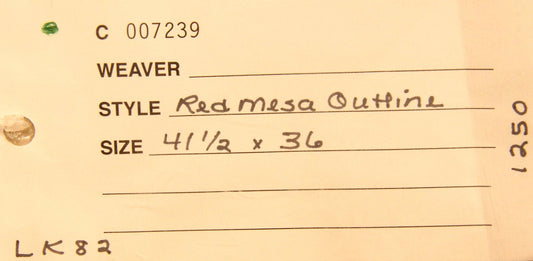 C 007239
WEAVER
STYLE Red Mesa Outline
SIZE 41 1/2 x 36
1250
LK82